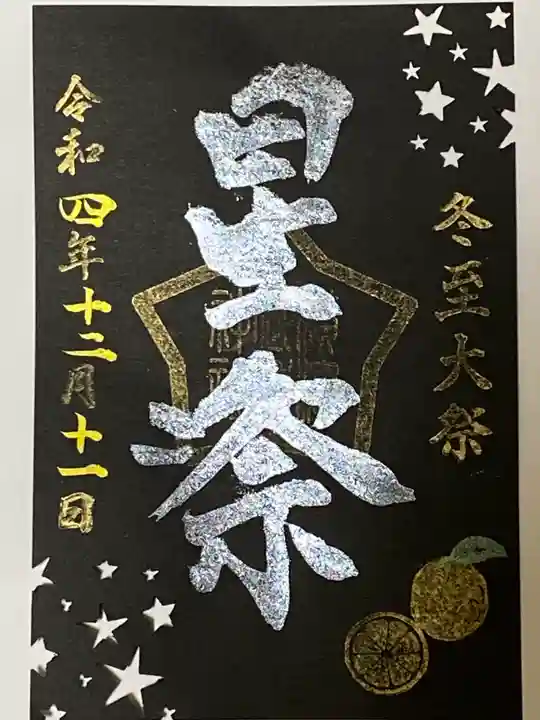 冬至大祭
星祭
令和四年十二月十一日